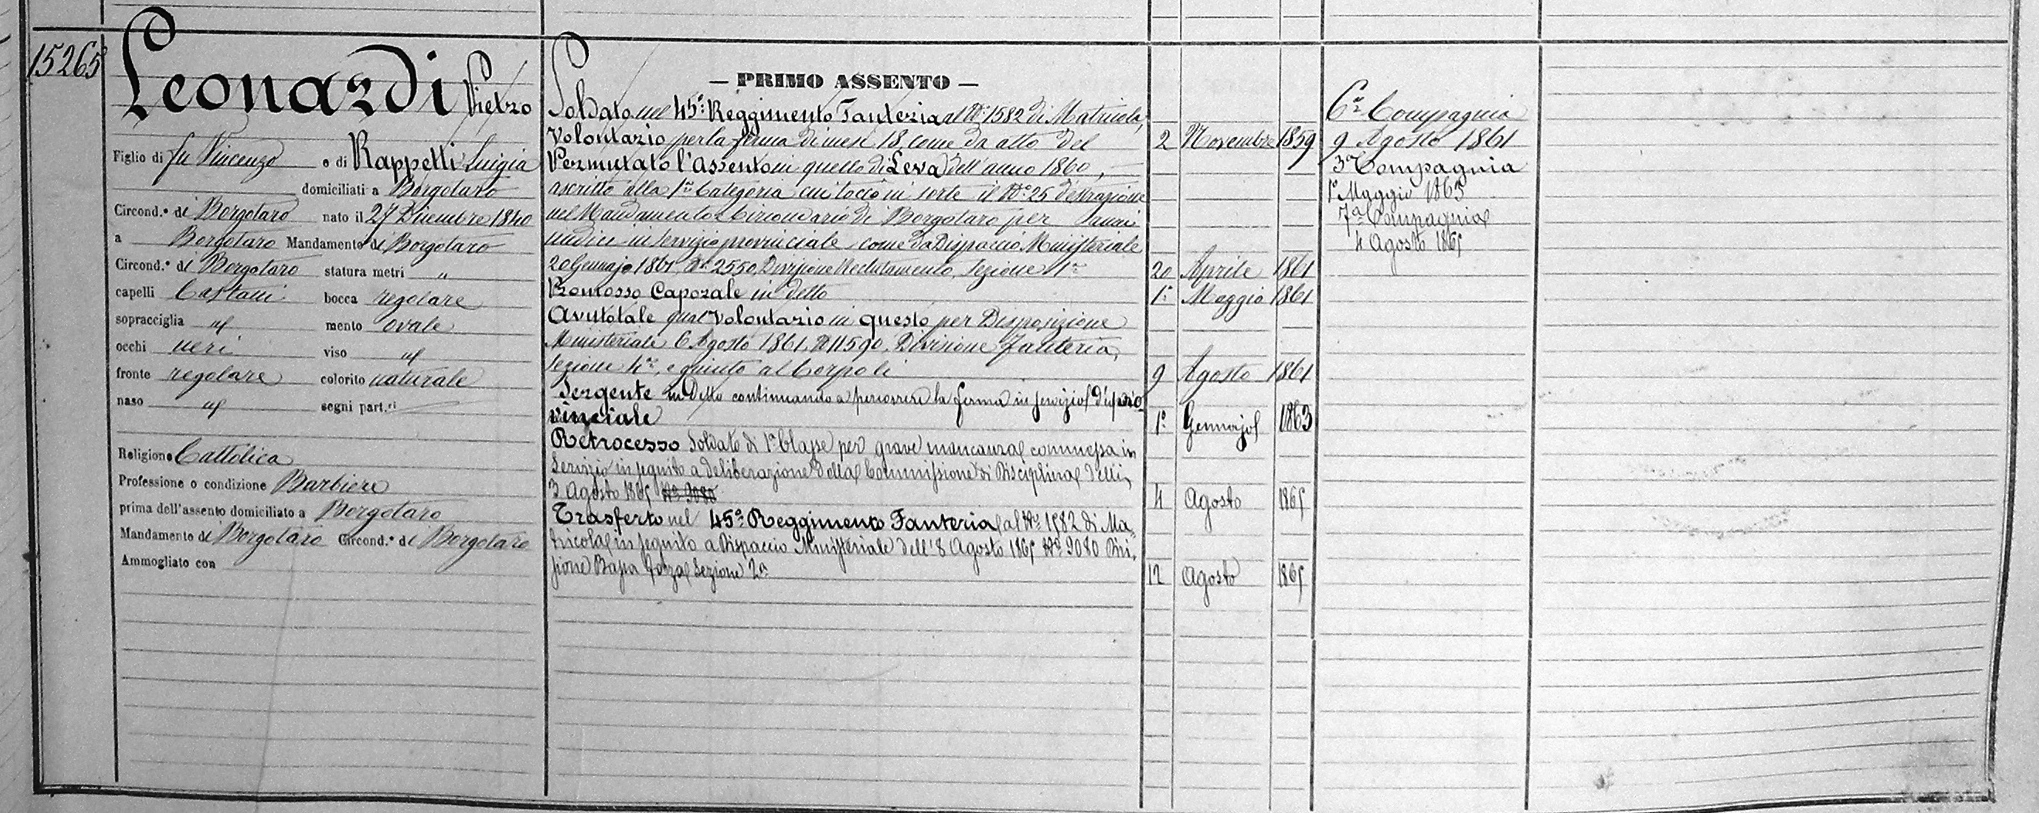 15265
Leonardi Pietro
Figlio di fu Vincenzo e di Rappetti Luigia
domiciliati a Borgotaro
Circond.º di Borgotaro nato il 27 Dicembre 1840
a Borgotaro Mandamento di Borgotaro
Circond.º di Borgotaro statura metri "
capelli Castani bocca regolare
sopracciglia id mento ovale
occhi neri viso id
fronte regolare colorito naturale
naso id segni part.ri
Religione Cattolica
Professione o condizione Barbiere
prima dell'assento domiciliato a Borgotaro
Mandamento di Borgotaro Circond.º di Borgotaro
Ammogliato con
— PRIMO ASSENTO —
Soldato nel 45º Reggimento Fanteria al Nº 1582 di Matricola,
Volontario per la ferma di mesi 18, come da atto del 2 Novembre 1859
Permutato l'assento in quello di Leva dell'anno 1860,
ascritto alla 1ª Categoria cui toccò in sorte il Nº 25 d'estrazione
nel Mandamento e Circondario di Borgotaro per anni
undici in servizio provinciale come da Dispaccio Ministeriale
20 Gennajo 1861 Nº 2550, Divisione Reclutamento, Sezione 1ª 20 Aprile 1861
Promosso Caporale in detto 1º Maggio 1861
Avutotale qual Volontario in questo per Disposizione
Ministeriale 6 Agosto 1861, Nº 11590, Divisione Fanteria,
Sezione 4ª, e giunto al Corpo li 9 Agosto 1861
Sergente in Detto continuando a percorrere la ferma in servizio d'pro
vinciale 1º Gennajo 1863
Retrocesso Soldato di 1ª Classe per grave mancanza commessa in
Servizio in seguito a deliberazione della Commissione di Disciplina delli
3 Agosto 1865 Nº 9080 4 Agosto 1865
Trasferto nel 45º Reggimento Fanteria al Nº 1582 di Ma=
tricola in seguito a Dispaccio Ministeriale dell'8 Agosto 1865 Nº 9080 Divi=
sione Bassa Forza Sezione 2ª 12 Agosto 1865
6ª Compagnia
9 Agosto 1861
3ª Compagnia
1º Maggio 1863
7ª Compagnia
4 Agosto 1865